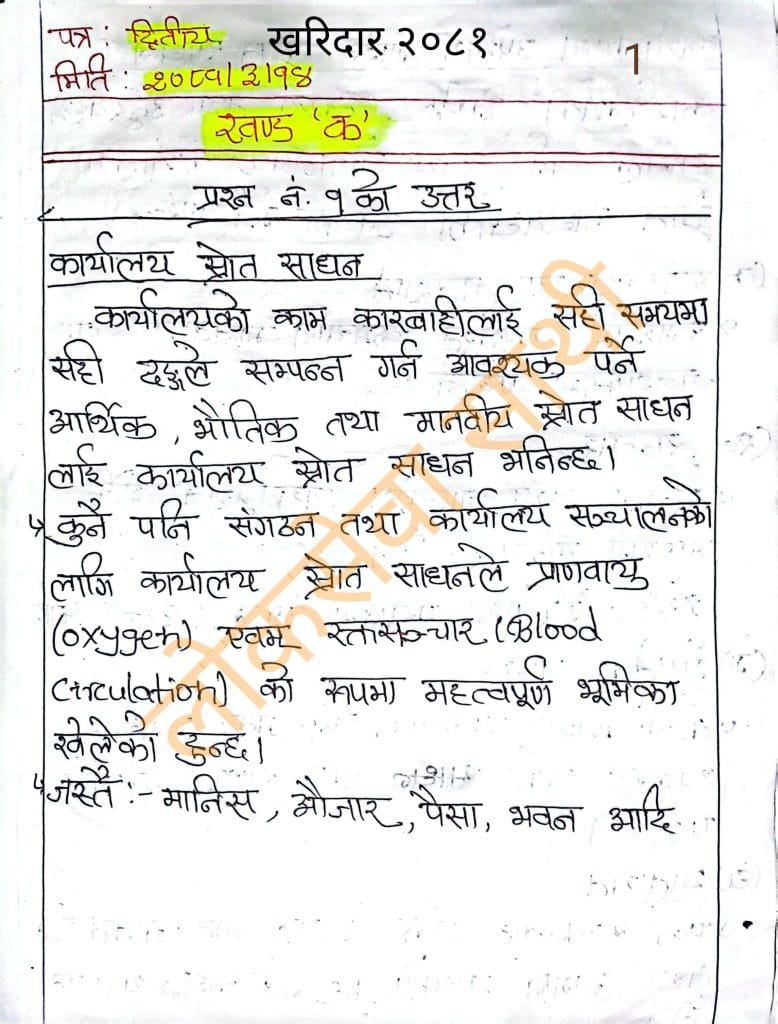 पत्र : द्वितीय
खरिदार २०८१
1
मिति : २०८१/३/१४
खण्ड 'क'
प्रश्न नं. १ को उत्तर
कार्यालय स्रोत साधन
कार्यालयको काम कारबाहीलाई सही समयमा
सही ढङ्गले सम्पन्न गर्न आवश्यक पर्ने
आर्थिक, भौतिक तथा मानवीय स्रोत साधन
लाई कार्यालय स्रोत साधन भनिन्छ।
↳ कुनै पनि संगठन तथा कार्यालय सञ्चालनको
लागि कार्यालय स्रोत साधनले प्राणवायु
(oxygen) एवम् रक्तसञ्चार (Blood
Circulation) को रूपमा महत्वपूर्ण भूमिका
खेलेको हुन्छ।
↳ जस्तै :- मानिस, औजार, पैसा, भवन आदि
लोकसेवा सारथी